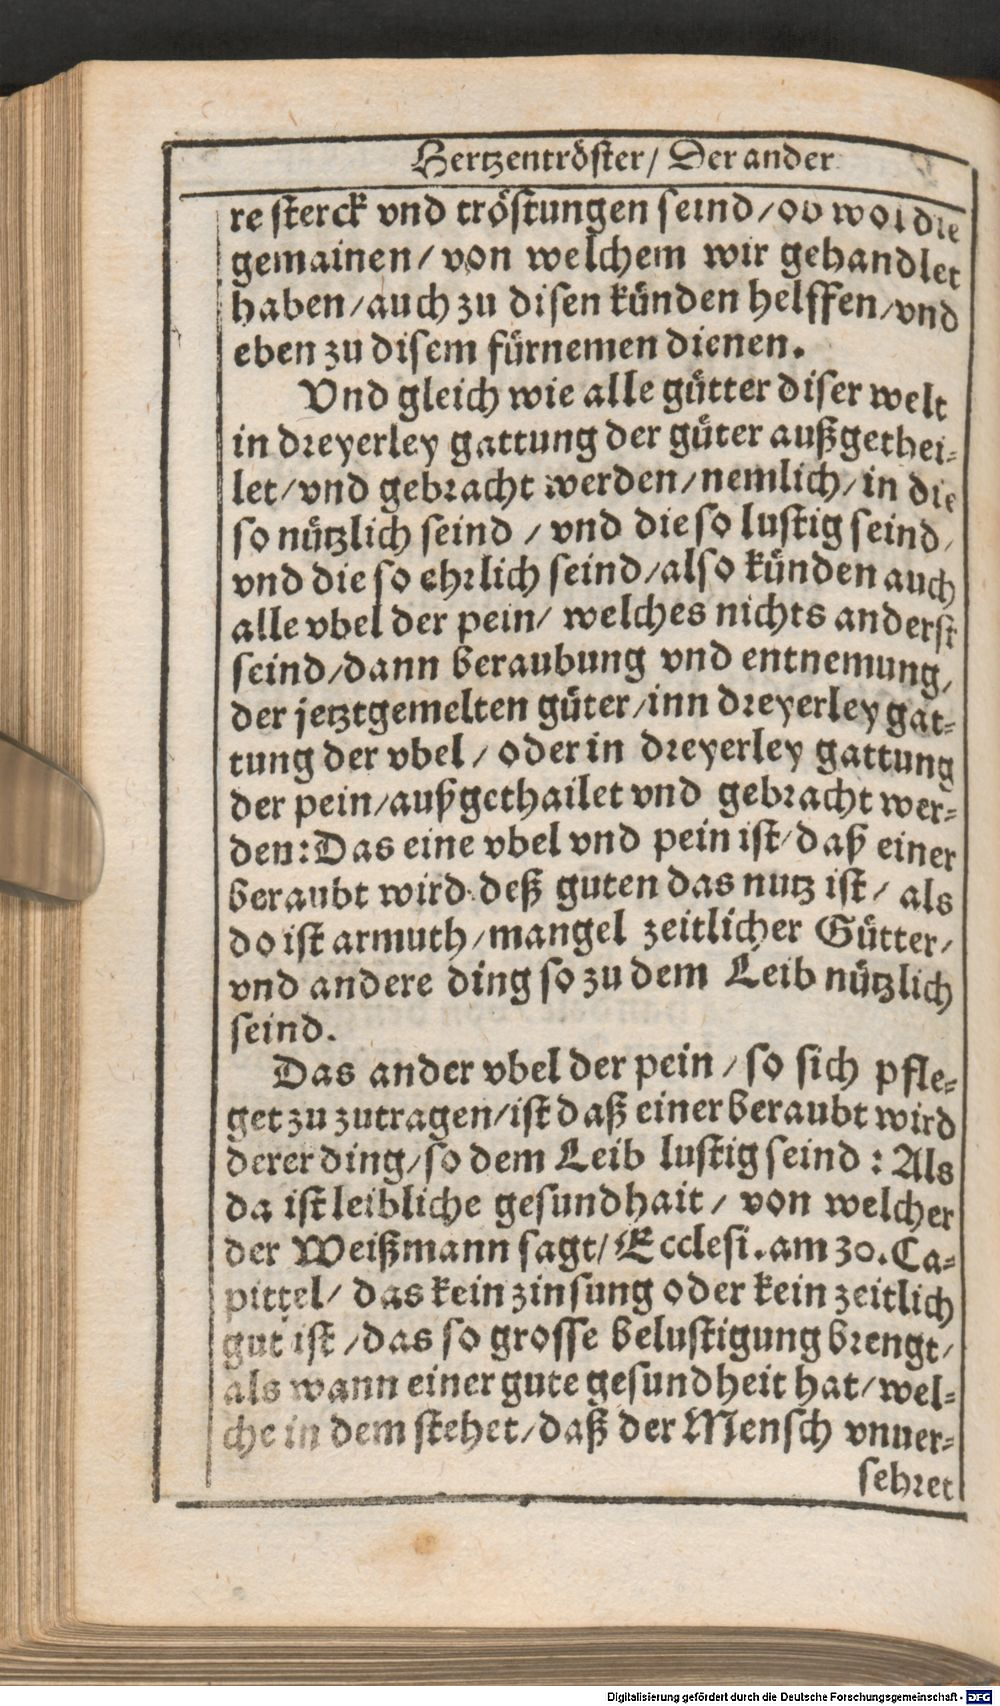 Hertzentröster/ Der ander
re sterck vnd tröstungen seind/ ob wol die
gemainen/ von welchem wir gehandlet
haben/ auch zu disen künden helffen/ vnd
eben zu disem fürnemen dienen.
Vnd gleich wie alle gütter diser welt
in dreyerley gattung der güter außgethei-
let/ vnd gebracht werden/ nemlich/ in die
so nützlich seind / vnd die so lustig seind/
vnd die so ehrlich seind/ also künden auch
alle vbel der pein/ welches nichts anderst
seind/ dann beraubung vnd entnemung/
der jetztgemelten güter/ inn dreyerley gat-
tung der vbel/ oder in dreyerley gattung
der pein/ außgethailet vnd gebracht wer-
den: Das eine vbel vnd pein ist/ daß einer
beraubt wird deß guten das nutz ist/ als
do ist armuth/ mangel zeitlicher Gütter/
vnd andere ding so zu dem Leib nützlich
seind.
Das ander vbel der pein / so sich pfle-
get zu zutragen/ ist daß einer beraubt wird
derer ding/ so dem Leib lustig seind : Als
da ist leibliche gesundhait/ von welcher
der Weißmann sagt/ Ecclesi. am 30. Ca-
pittel/ das kein zinsung oder kein zeitlich
gut ist / das so grosse belustigung brengt/
als wann einer gute gesundheit hat/ wel-
che in dem stehet/ daß der Mensch vnuer-
sehret
Digitalisierung gefördert durch die Deutsche Forschungsgemeinschaft - DFG